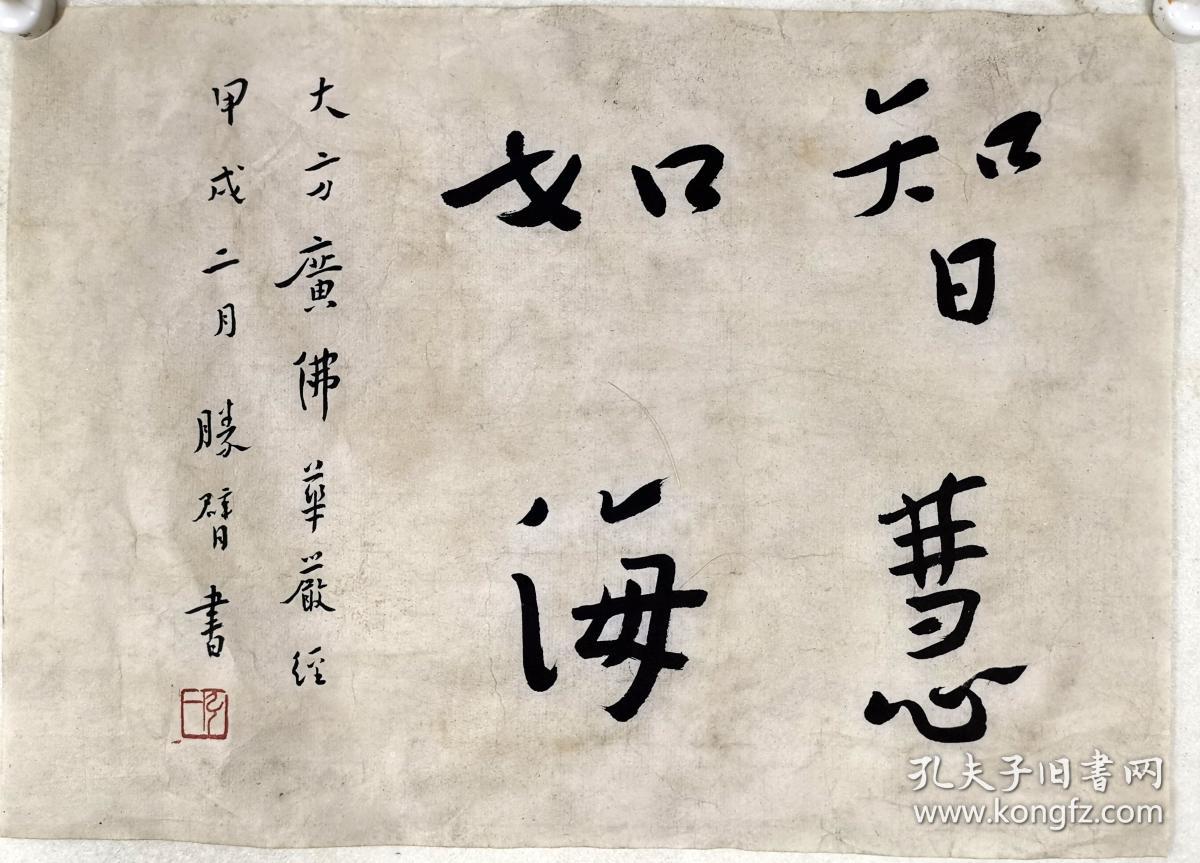 智慧
如海
大方廣佛華嚴經
甲戌二月 勝臂書
孔夫子旧書网
www.kongfz.com